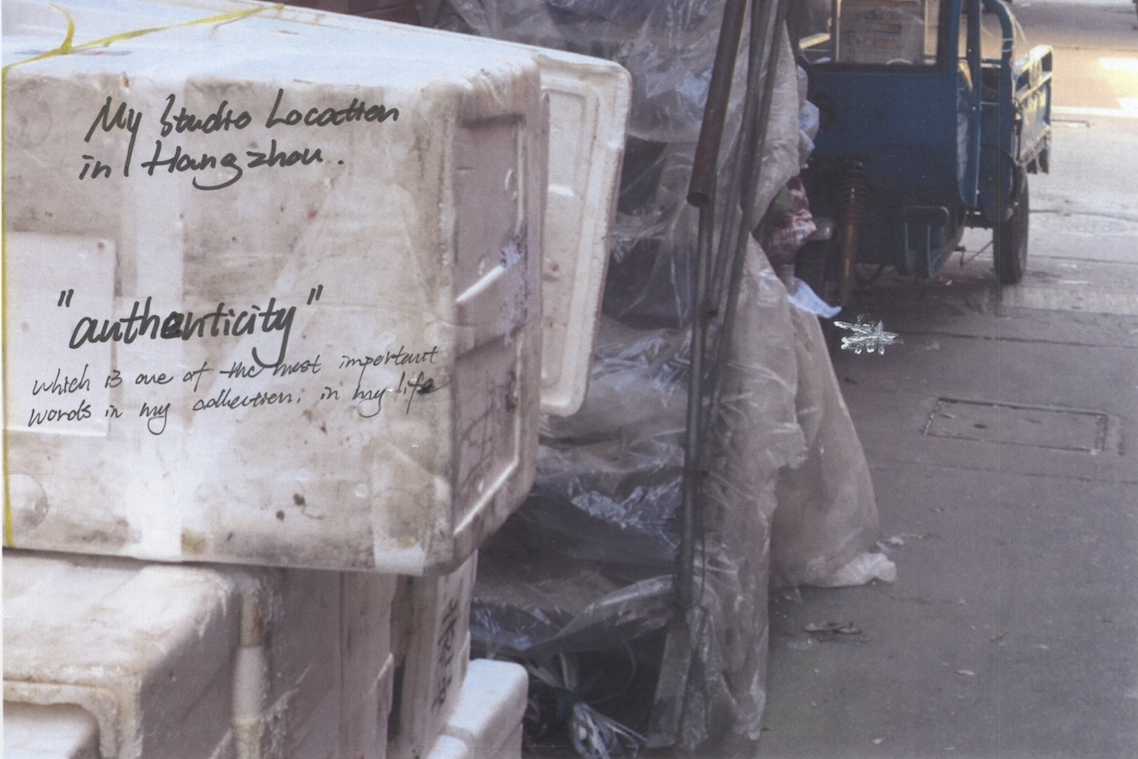 My Studio Location
in Hangzhou.
"authenticity"
which is one of the most important
words in my collection, in my life